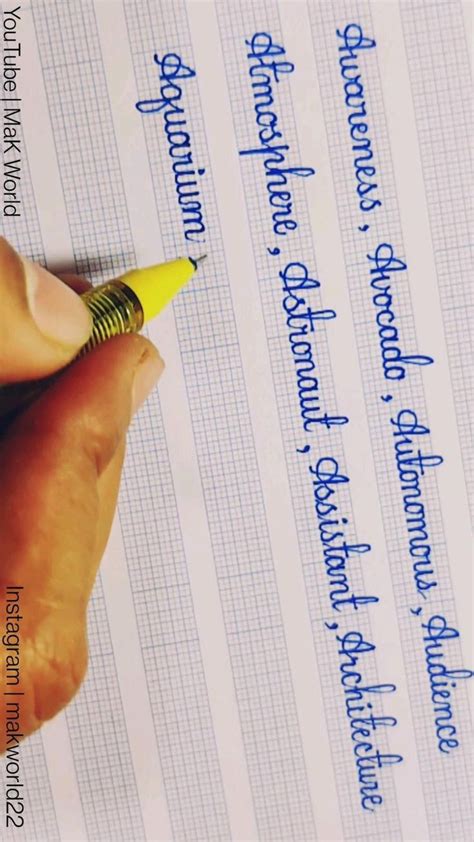 YouTube | MaK World
Instagram | makworld22
Awareness, Avocado, Autonomous, Audience
Atmosphere, Astronaut, Assistant, Architecture
Aquarium